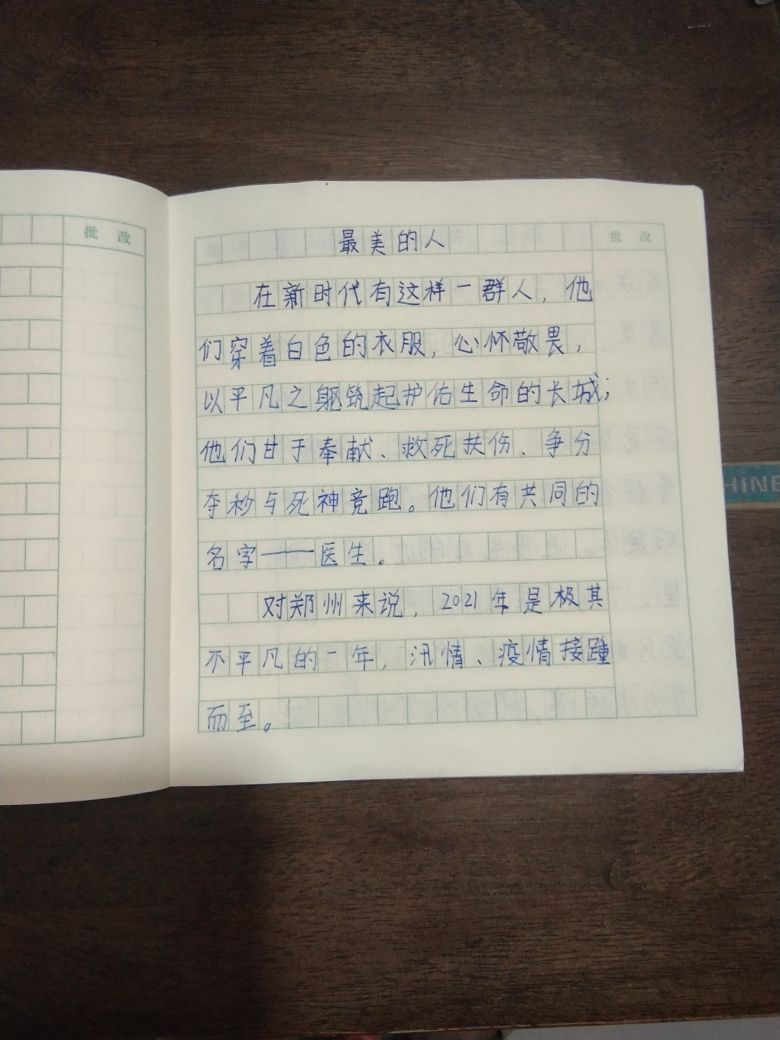 批 改
最美的人
批 改
在新时代有这样一群人，他
们穿着白色的衣服，心怀敬畏，
以平凡之躯筑起护佑生命的长城；
他们甘于奉献、救死扶伤、争分
夺秒与死神竞跑。他们有共同的
名字——医生。
对郑州来说，2021年是极其
不平凡的一年，汛情、疫情接踵
而至。
HINE